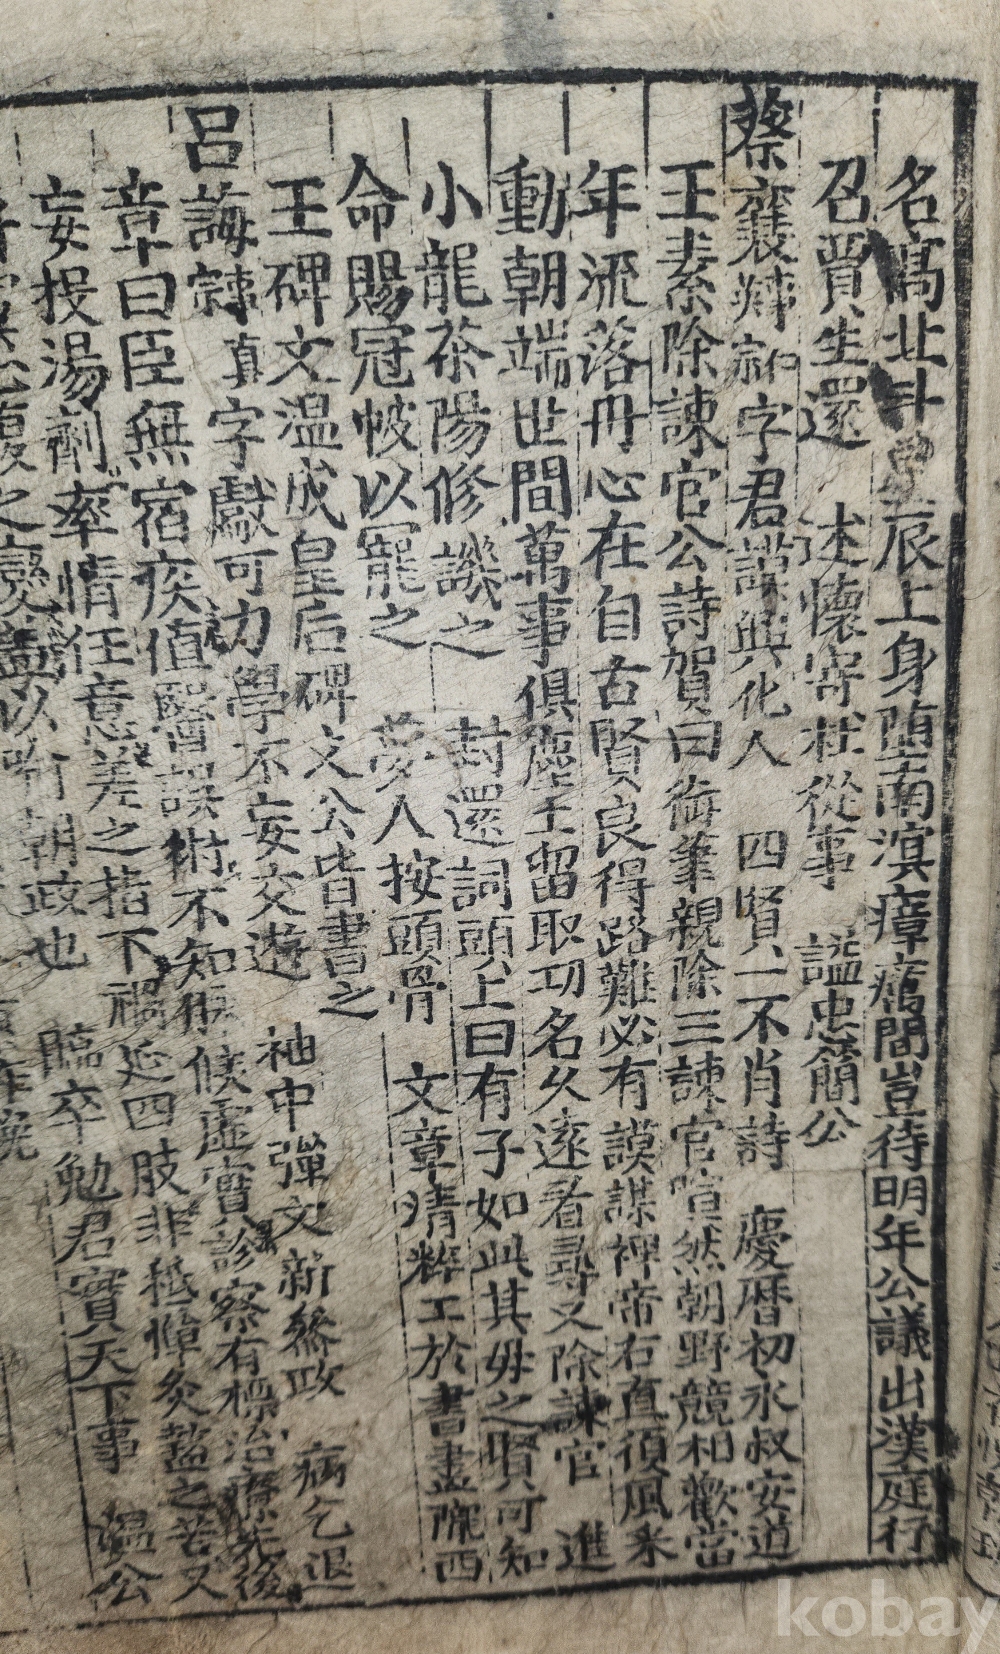 名高北斗星辰上身墮南溟瘴癘間豈待明年公議出漢庭行
召賈生還 述懷寄杜從事 謚忠簡公
蔡襄 字君謨興化人 四賢一不肖詩 慶曆初永叔安道
王素除諫官公詩賀曰御筆親除三諫官喧然朝野競相歡當
年流落丹心在自古賢良得路難必有謨謀裨帝右直須風采
動朝端世間萬事俱塵土留取功名久遠看尋又除諫官 進
小龍茶陽修譏之 封還詞頭上曰有子如此其母之賢可知
命賜冠帔以寵之 夢人按頭骨 文章清粹工於書畫隴西
王碑文温成皇后碑文公皆書之
呂誨 字獻可力學不妄交遊 袖中彈文新叅政 病乞退
章曰臣無宿疾值醫誤術不知 候虛實診察有標治療先後
妄投湯劑率情任意差之指下禍延四肢非秪憚灸盭之苦又
腹之變盖以 朝政也 臨卒勉君實天下事 溫公
kobay